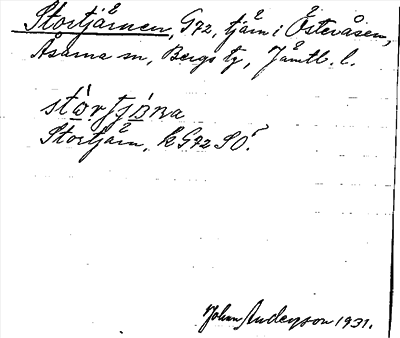 Stortjärnen, G72, tjärn i Österåsen,
Åsarna sn, Bergs tg, Jämtl. l.
Stortjärn, k G72 SO.
Johan Anderson 1931.